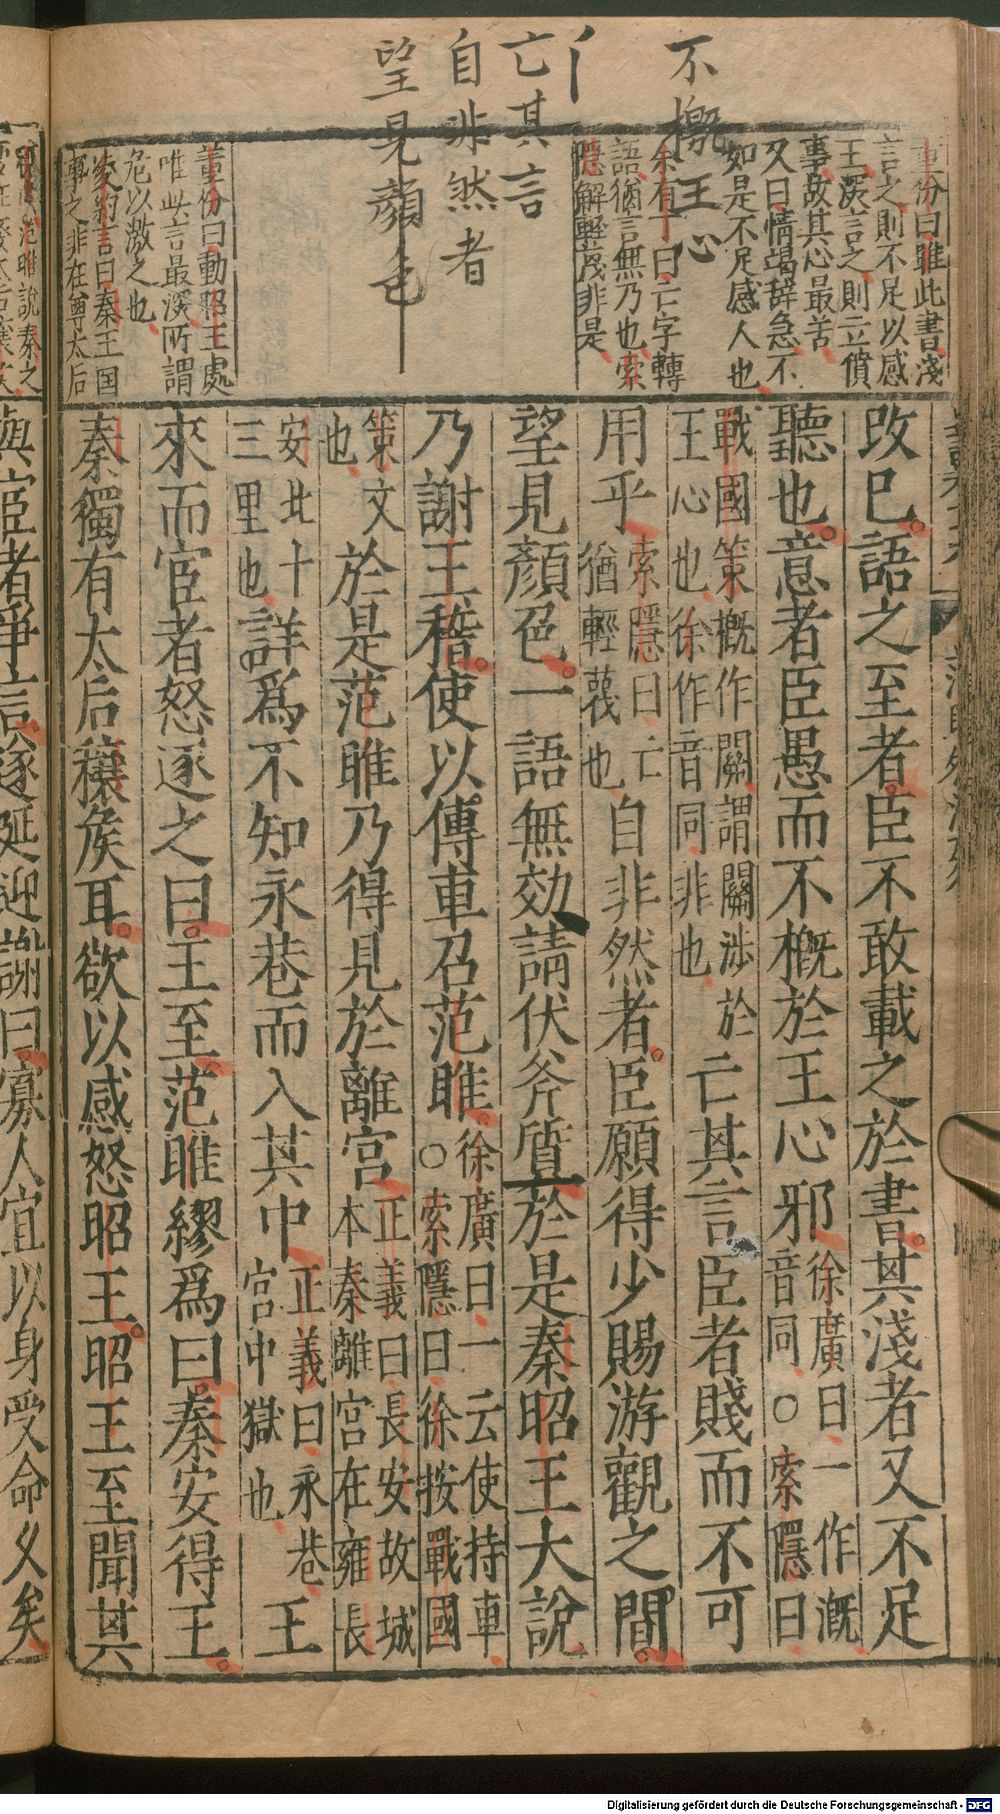 不概王心
亡其言
自非然者
望見顏色
董份曰雖此書淺
言之則不足以感
王深言之則立僨
事故其心最苦
又曰情竭辭急不
如是不足感人也
余有丁曰亡字轉
語猶言無乃也索
隱解輕蔑非是
董份曰動昭王處
唯此言最深所謂
危以激之也
事之非在尊太后
改已語之至者臣不敢載之於書其淺者又不足
聽也意者臣愚而不概於王心邪徐廣曰一作漑音同○索隱曰
戰國策概作關謂關涉於王心也徐作音同非也亡其言臣者賤而不可
用乎索隱曰亡猶輕蔑也自非然者臣願得少賜游觀之間
望見顏色一語無効請伏斧質於是秦昭王大說
乃謝王稽使以傳車召范雎徐廣曰一云使持車○索隱曰徐按戰國
策文也於是范雎乃得見於離宮正義曰長安故城本秦離宮在雍長
安北十三里也詳爲不知永巷而入其中正義曰永巷宮中獄也王
來而宦者怒逐之曰王至范雎繆爲曰秦安得王
秦獨有太后穰侯耳欲以感怒昭王昭王至聞其
與宦者爭言遂延迎謝曰寡人宜以身受命久矣
Digitalisierung gefördert durch die Deutsche Forschungsgemeinschaft - DFG